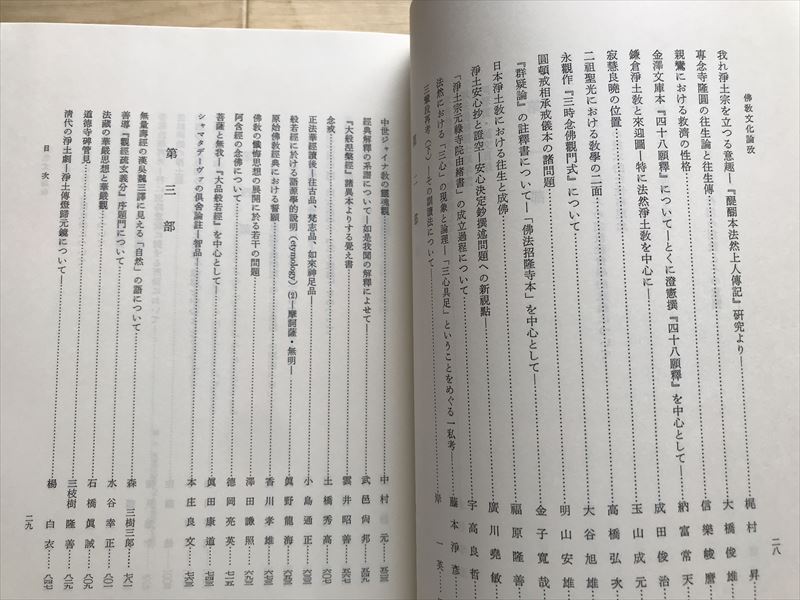 佛教文化論攷
二八
我れ淨土宗を立つる意趣—『醍醐本法然上人傳記』研究より—…梶村 昇
專念寺隆圓の往生論と往生傳…大橋俊雄
親鸞における救濟の性格…信樂峻麿
金澤文庫本『四十八願釋』について—とくに澄憲撰『四十八願釋』を中心として—…納富常天
鎌倉淨土教と來迎圖—特に法然淨土教を中心に—…成田俊治
寂慧良曉の位置…玉山成元
二祖聖光における教學の二面…高橋弘次
永觀作『三時念佛觀門式』について…大谷旭雄
圓頓戒相承戒儀本の諸問題…明山安雄
『群疑論』の註釋書について—「佛法招隆寺本」を中心として—…金子寬哉
日本淨土教における往生と成佛…福原隆善
淨土安心抄と證空—安心決定鈔撰述問題への新視點—…廣川堯敏
「淨土宗元祿寺院由緒書」の成立過程について…宇高良哲
法然における「三心」の現象と論理—「三心具足」ということをめぐる一私考—…藤本淨彥
三纈段再考(下)—その訓讀法について—…岸 一英
中世ジャイナ教の靈魂觀…中村 元 五三三
經典解釋の系譜について—如是我聞の解釋によせて—…武邑尙邦 五四九
『大般涅槃經』諸異本よりする覺え書…雲井昭善 五六七
念戒…土橋秀高 六〇七
正法華經讀後—往古品、梵志品、如來神足品—…小島通正
般若經に於ける語源學的說明(etymology)(2)—摩訶薩・無明—…眞野龍海
原始佛敎經典における誓願…香川孝雄
佛教の懺悔思想の展開に於る若干の問題…澤田謙照
阿含經の念佛について…德岡亮英 七一五
菩薩と無我—『大品般若經』を中心として—…眞田康道 七四三
シャマタデーヴァの俱舍論註—智品—…本庄良文 七六三
第三部
無量壽經の漢吳魏三譯に見える「自然」の語について…森 三樹三郎 七八一
善導『觀經疏玄義分』序題門について…水谷幸正 八〇一
法藏の華嚴思想と華嚴觀…石橋眞誠 八〇九
道德寺碑管見…三枝樹隆善 八二九
淸代の淨土劇—淨土傳燈歸元鏡について—…楊 白衣 八四七
目次
二九